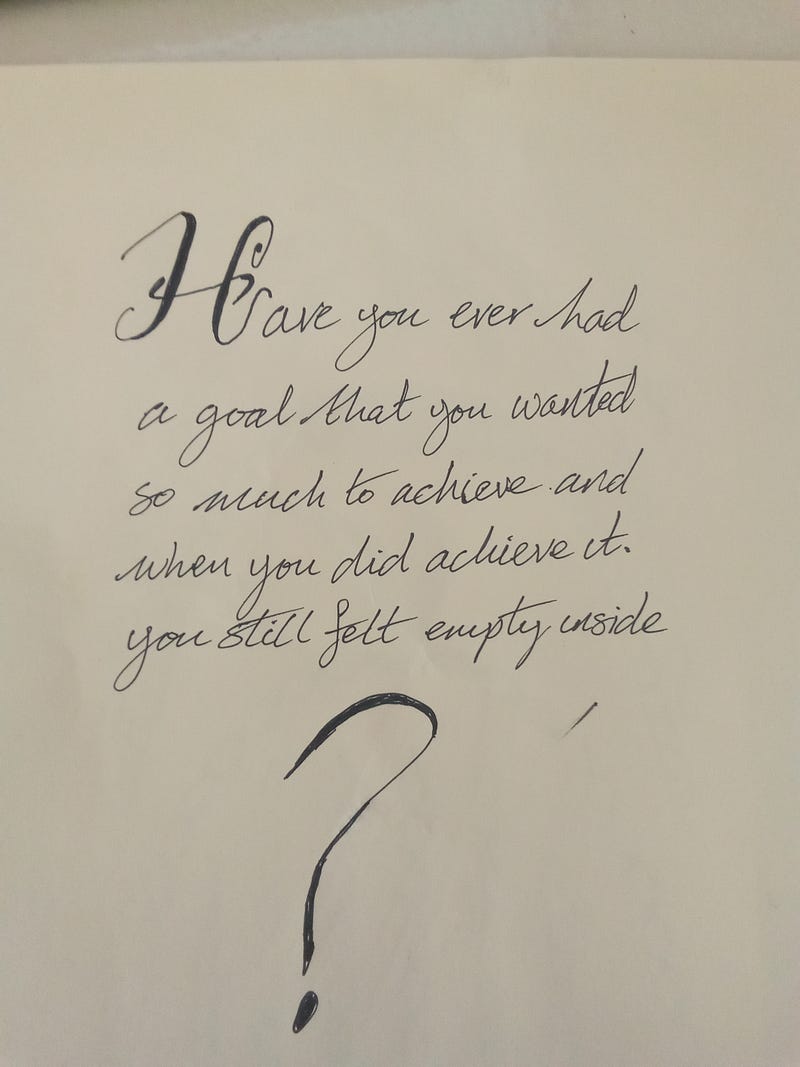 Have you ever had
a goal that you wanted
so much to achieve and
when you did achieve it.
you still felt empty inside
?